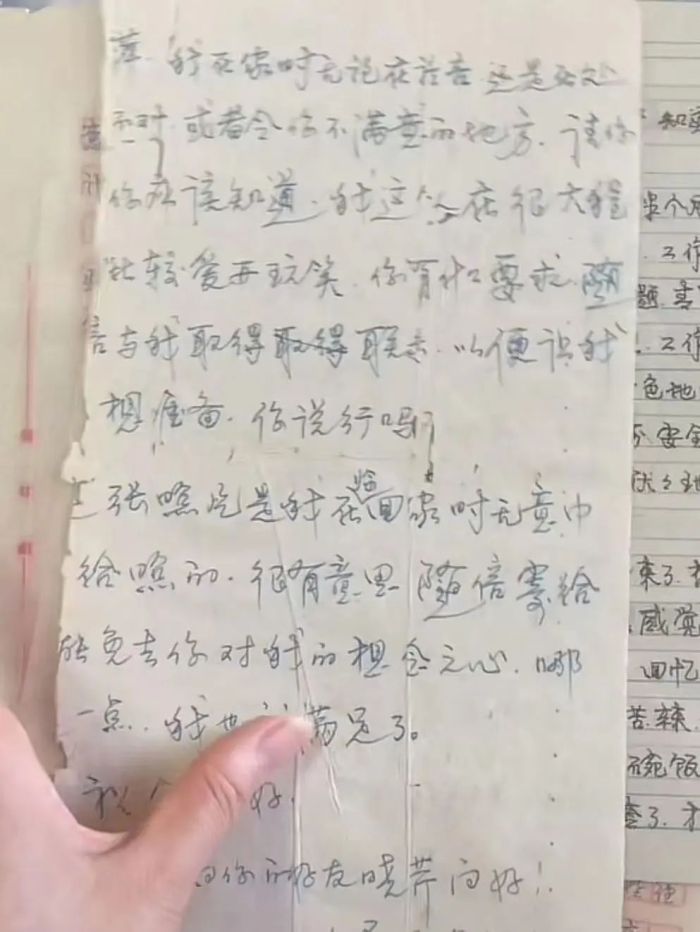 萍.我在家时无论在语言还是在处
不对.或者令你不满意的地方.请你
你应该知道.我这个在很大程
比较爱开玩笑.你有什么要求.随
信与我取得取得联系.以便让我
想准备.你说行吗?
这张照片是我在临回家时无意中
给照的.很有意思随信寄给
能免去你对我的想念之心.哪
一点.我也满足了。
祝 好.
向你的好友晓芹问好!.
知道
工作
题.
.工作
色地
安全
来了.才
感觉
回忆
苦辣.
碗饭
了.才